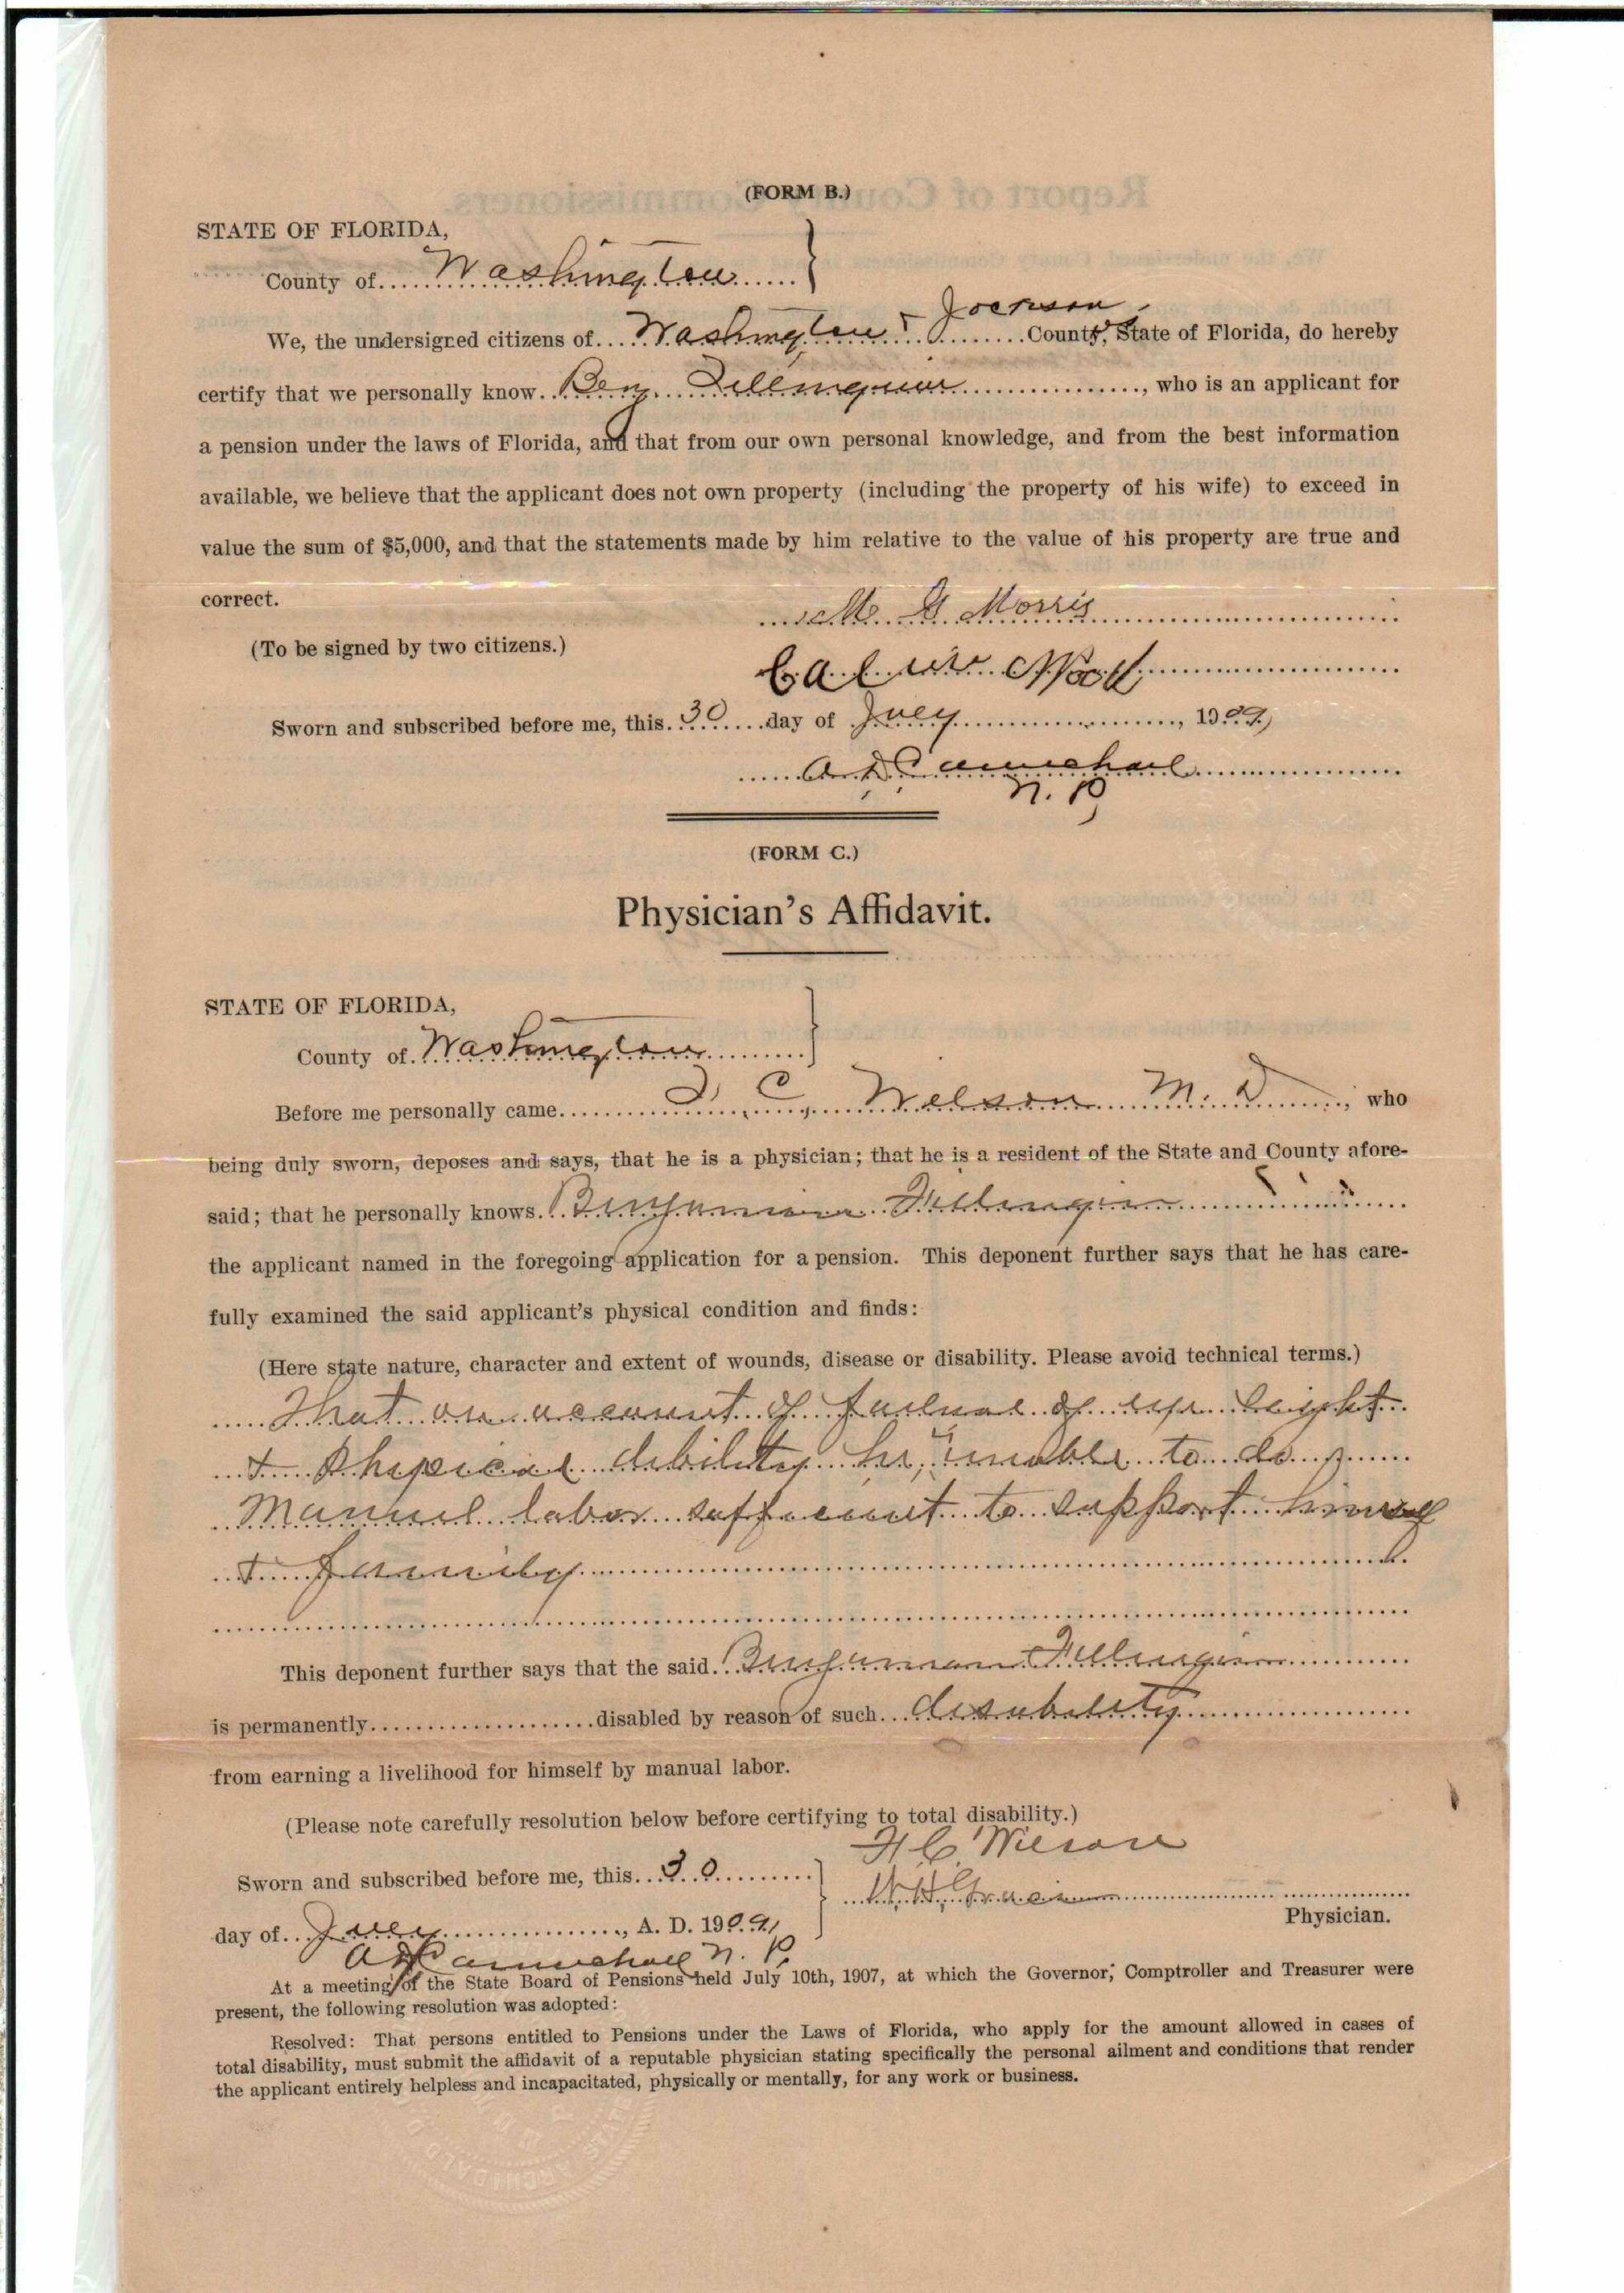 (FORM B.)
STATE OF FLORIDA,
County of Washington
Jackson
We, the undersigned citizens of Washington & County, State of Florida, do hereby
certify that we personally know Benj. Fillingim, who is an applicant for
a pension under the laws of Florida, and that from our own personal knowledge, and from the best information
available, we believe that the applicant does not own property (including the property of his wife) to exceed in
value the sum of $5,000, and that the statements made by him relative to the value of his property are true and
correct.
G Morris
(To be signed by two citizens.)
Sworn and subscribed before me, this 30 day of July, 1909
A D Carmichael
N. P.
(FORM C.)
Physician's Affidavit.
STATE OF FLORIDA,
County of Washington
Before me personally came C. Wilson M. D., who
being duly sworn, deposes and says, that he is a physician; that he is a resident of the State and County afore-
said; that he personally knows Benjamin Fillingim
the applicant named in the foregoing application for a pension. This deponent further says that he has care-
fully examined the said applicant's physical condition and finds:
(Here state nature, character and extent of wounds, disease or disability. Please avoid technical terms.)
That on account of failure of eye sight
& physical debility he is unable to do
Manuel labor sufficient to support himself
& family
This deponent further says that the said Benjaman Fillingim
is permanently disabled by reason of such disability
from earning a livelihood for himself by manual labor.
(Please note carefully resolution below before certifying to total disability.)
H C Wilson
Sworn and subscribed before me, this 30
Physician.
day of July, A. D. 1909
A D Carmichael N. P.
At a meeting of the State Board of Pensions held July 10th, 1907, at which the Governor, Comptroller and Treasurer were
present, the following resolution was adopted:
Resolved: That persons entitled to Pensions under the Laws of Florida, who apply for the amount allowed in cases of
total disability, must submit the affidavit of a reputable physician stating specifically the personal ailment and conditions that render
the applicant entirely helpless and incapacitated, physically or mentally, for any work or business.